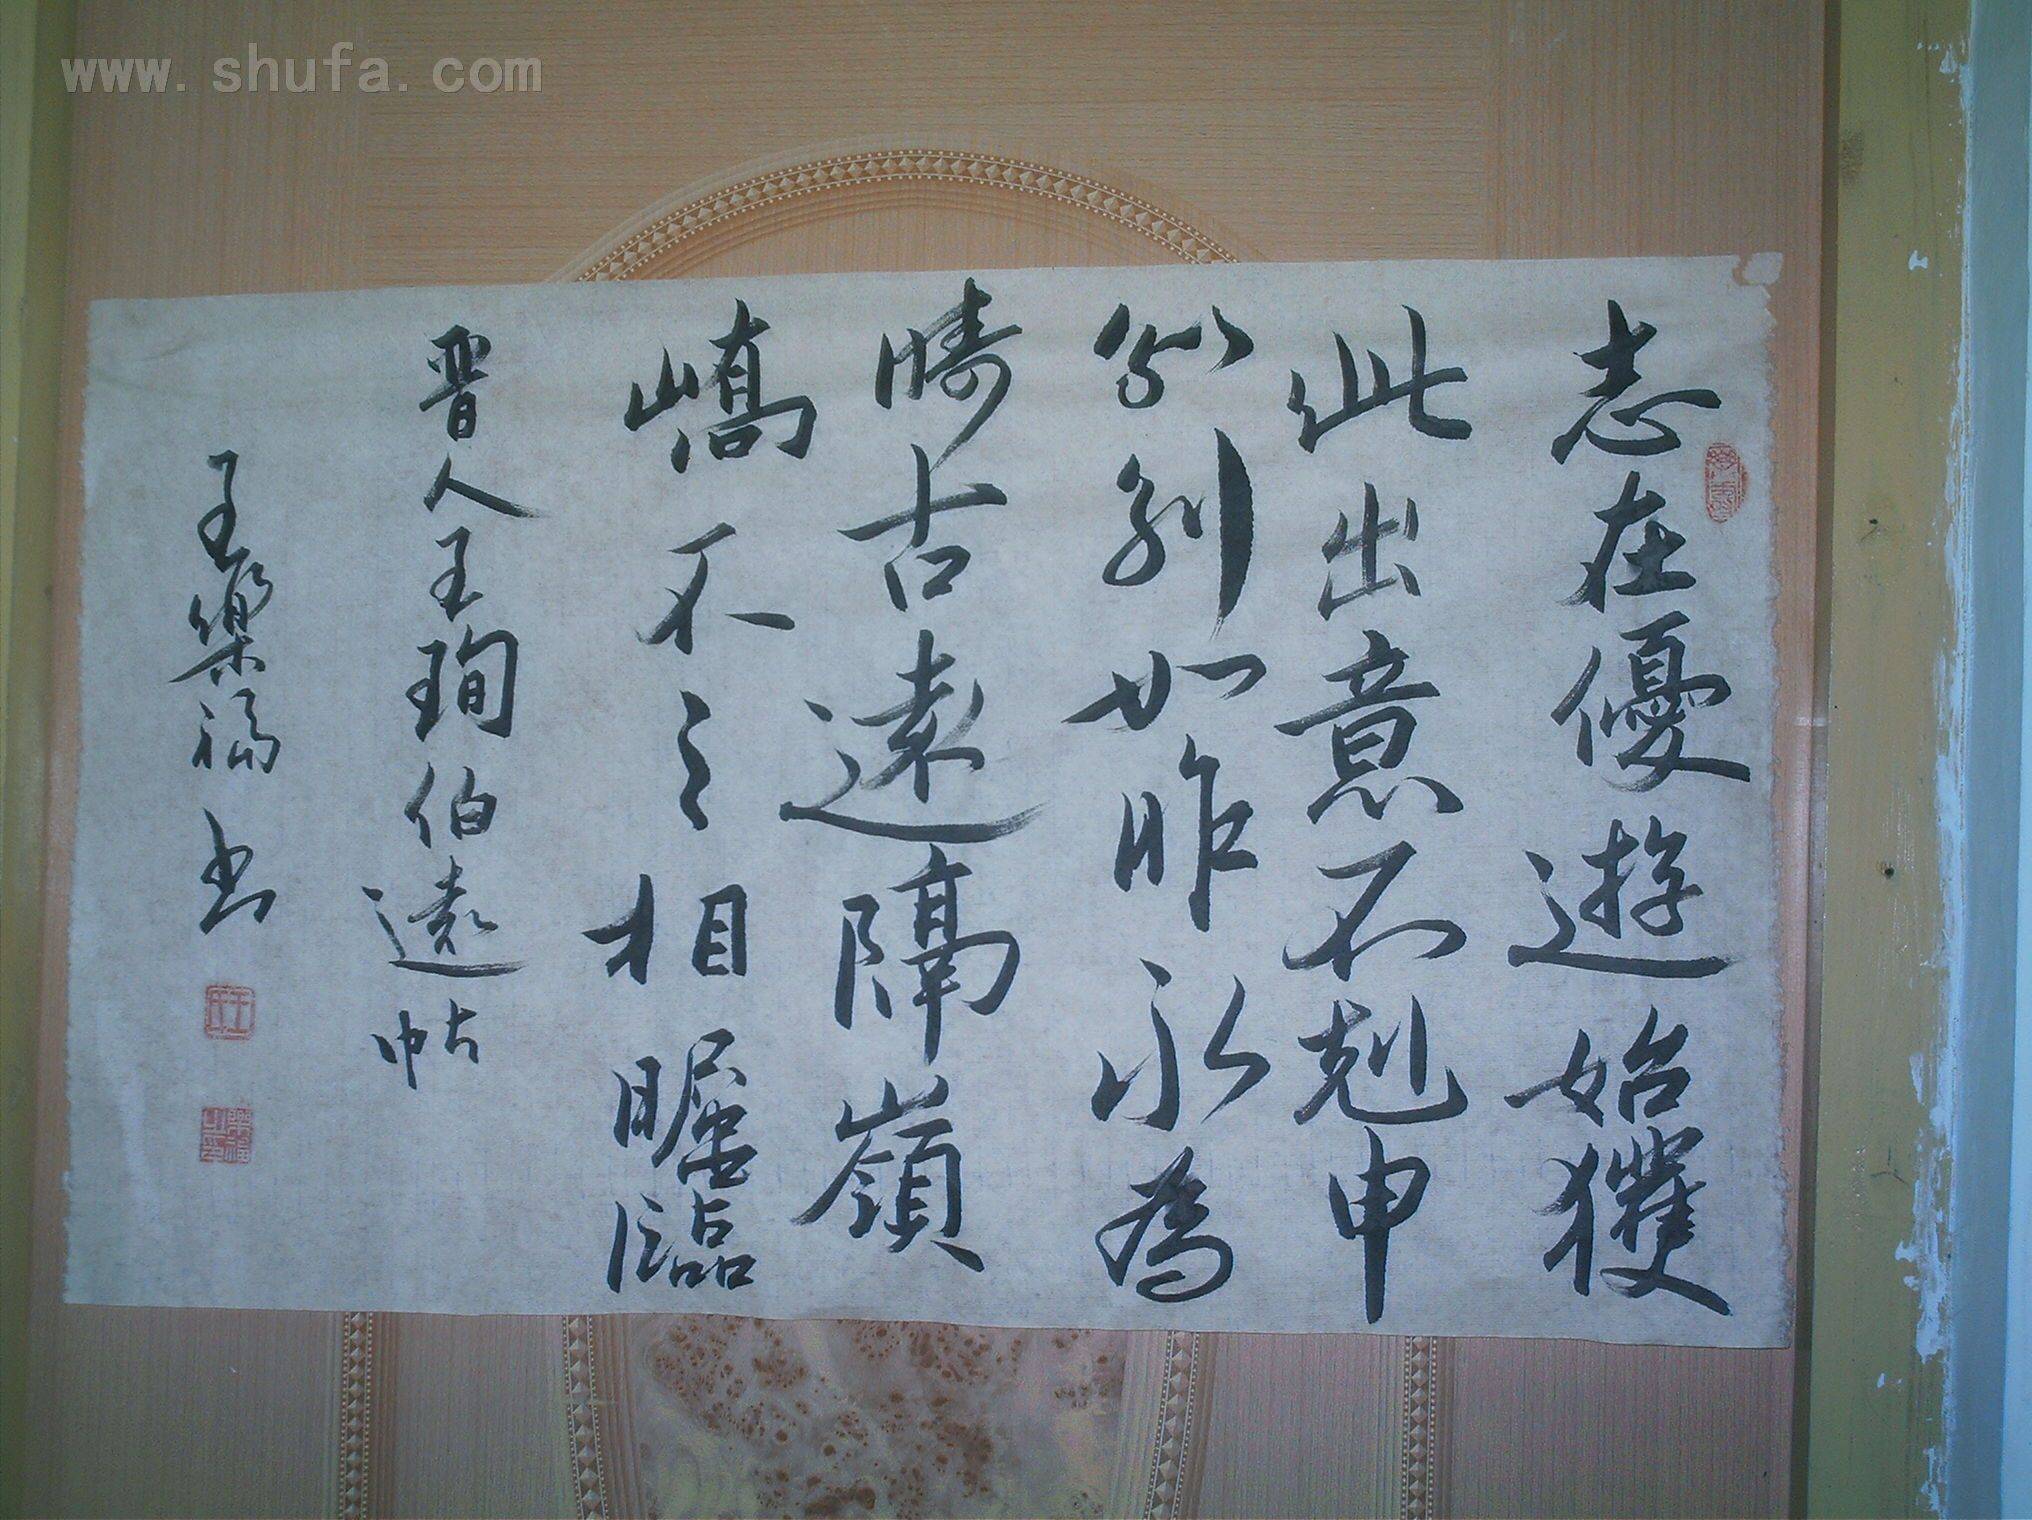 www.shufa.com
志在優遊始獲
此出意不剋申
分別如昨永為
疇古遠隔嶺
嶠不之相瞻臨
晋人王珣伯遠帖
王樂福书